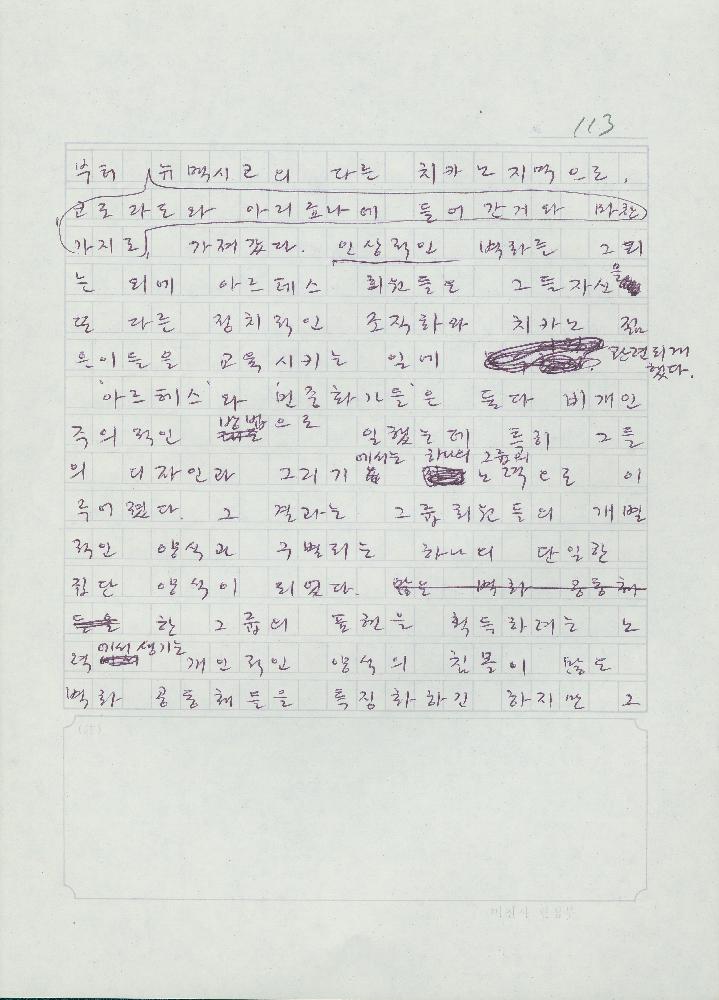 113
부터 뉴멕시코의 다른 치카노지역으로,
코로라도와 아리조나에 들어간거와 마찬
가지로, 가져갔다. 인상적인 벽화를 그리
는 외에 아르테스 회원들은 그들자신을
또 다른 정치적인 조직화와 치카노 젊
은이들을 교육시키는 일에 관련되게
했다.
'아르테스'와 '민중화가들'은 둘다 비개인
주의적인 방법으로 일했는데 특히 그들
의 디자인과 그리기에서는 하나의 그룹의 노력으로 이
루어졌다. 그 결과는 그룹회원들의 개별
적인 양식과 구별되는 하나의 단일한
집단 양식이 되었다. 많은 벽화 공동체
들을 한 그룹의 표현을 획득하려는 노
력에서 생기는 개인적인 양식의 침몰이 많은
벽화 공동체들을 특징화하긴 하지만 그